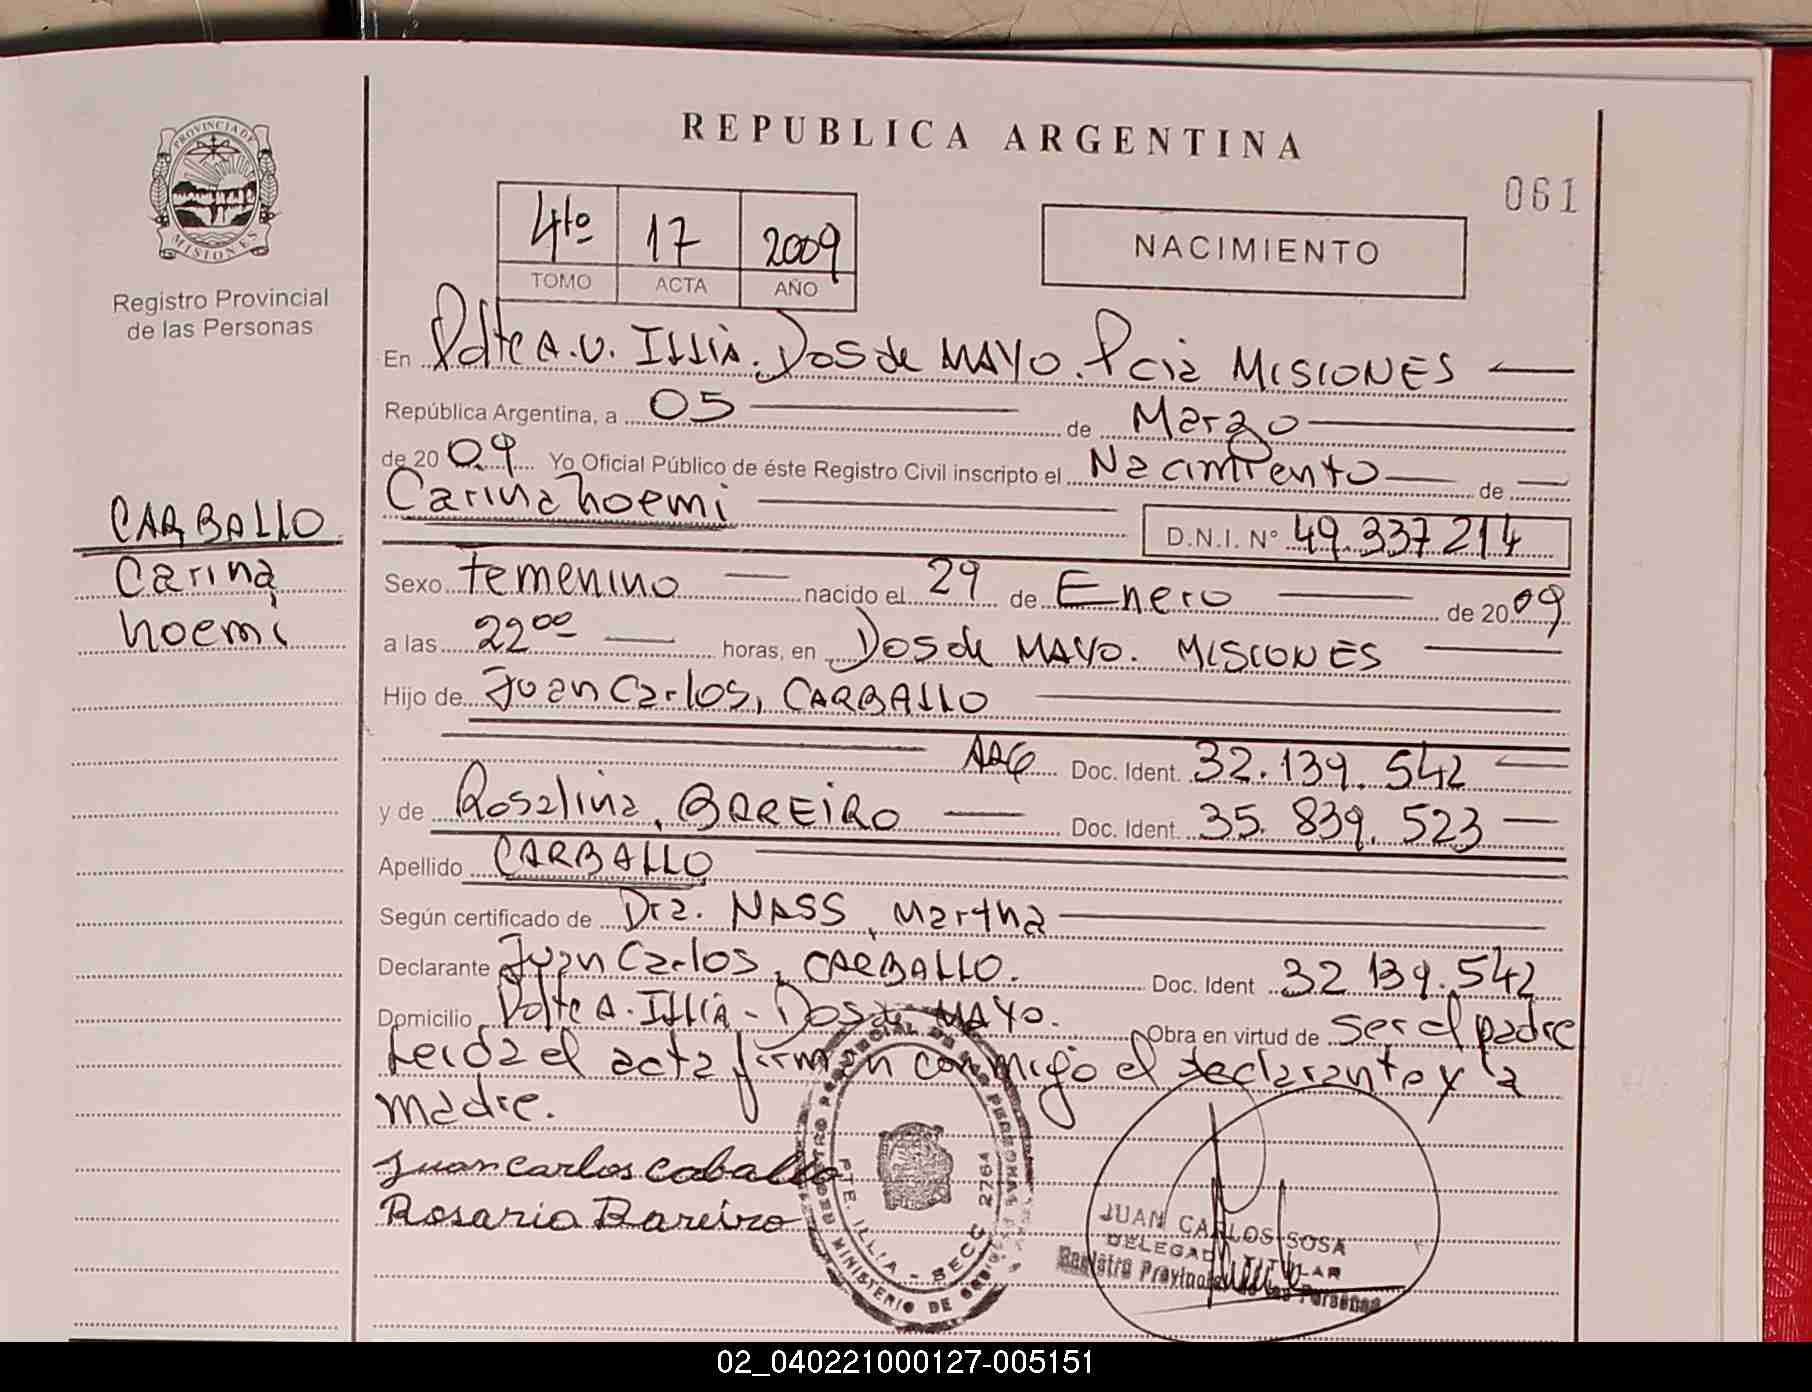 REPUBLICA ARGENTINA
061
PROVINCIA DE MISIONES
Registro Provincial
de las Personas
4to 17 2009
TOMO ACTA AÑO
NACIMIENTO
En Pdte A.U. Illia. Dos de MAYO. Pcia MISIONES
República Argentina, a 05 de Marzo
de 2009 Yo Oficial Público de éste Registro Civil inscripto el Nacimiento de
Carina noemi D.N.I. N° 49.337 214
CARBALLO
Carina
noemi
Sexo femenino nacido el 29 de Enero de 2009
a las 22 00 horas, en Dos de MAYO. MISIONES
Hijo de Juan Carlos, CARBALLO
ARG Doc. Ident. 32.139.542
y de Rosalina, BAREIRO Doc. Ident. 35.839.523
Apellido CARBALLO
Según certificado de Dra. NASS, Martha
Declarante Juan Carlos, CARBALLO. Doc. Ident 32 139.542
Domicilio Pdte A. Illia - Dos de MAYO. Obra en virtud de ser el padre
Leida el acta firman conmigo el declarante y la
madre.
Juan carlos caballo
Rosario Bareiro
PTE. ILLIA - SECC 2764
JUAN CARLOS SOSA
DELEGADO TITULAR
Registro Provincial de las Personas
02_040221000127-005151